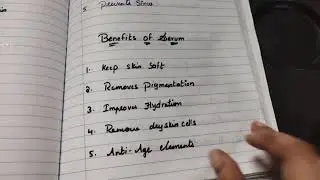 5 Prevents
Benefits of Serum
1. Keep skin soft
2. Removes Pigmentation
3. Improves Hydration
4. Remove dryskin cells
5. Anti-Age elements